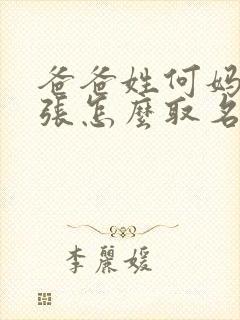 爸爸姓何妈
張怎麼取名
李麗媛